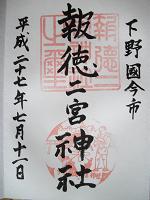 下野國今市
報徳二宮神社
平成二十七年七月十一日